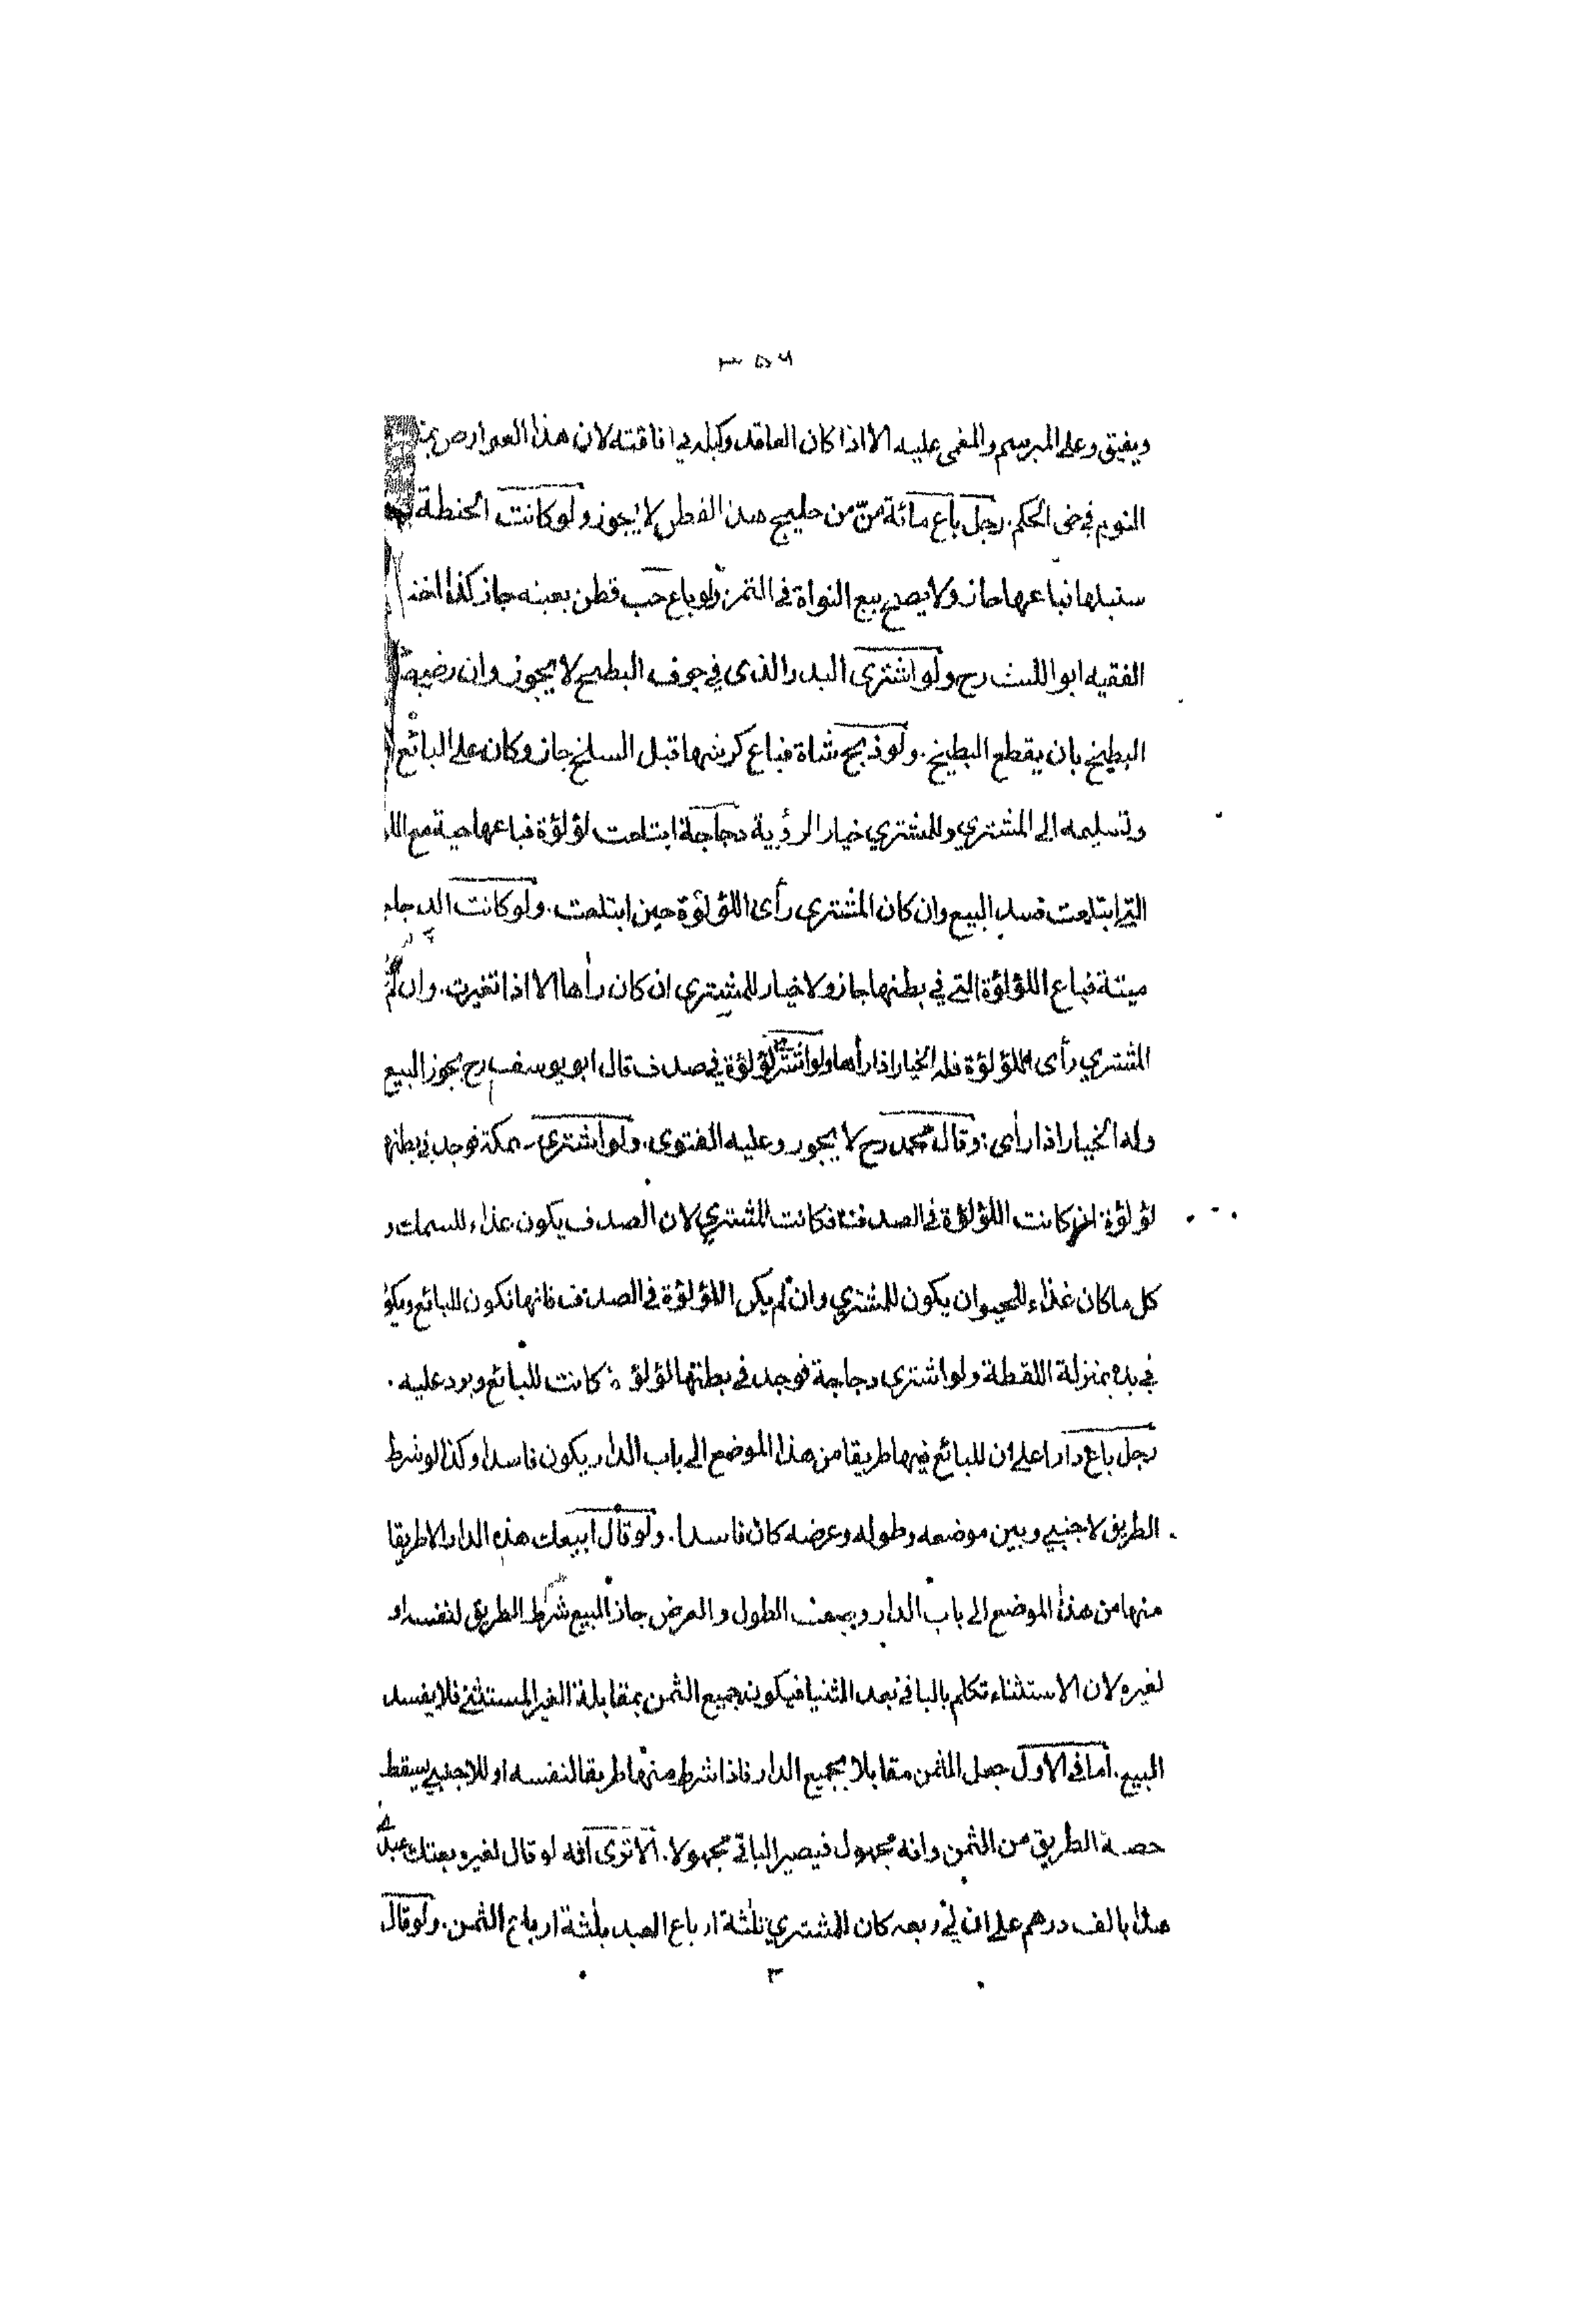 ٣٥٦
ويفيق وعلى المبرسم والمغمى عليه الا اذا كان العاقد وكيله في افاقته لان هذا العوارض بمنـ
النوم في حق الحكم. رجل باع مائة منّ من حليج هذا القطن لا يجوز ولو كانت الحنطة
سنبلها فباعها جاز ولا يصح بيع النواة في التمر ولو باع حب قطن بعينه جاز كذا اختـ
الفقيه ابو الليث رح ولو اشترى البذر الذى في جوف البطيخ لا يجوز وان رضي صا
البطيخ بان يقطع البطيخ. ولو ذبح شاة فباع كرشها قبل السلخ جاز وكان على البائع
وتسليمه الى المشتري وللمشتري خيار الرؤية دجاجة ابتلعت لؤلؤة فباعها حية مع اللـ
التي ابتلعت فسد البيع وان كان المشتري رأى اللؤلؤة حين ابتلعت. ولو كانت الدجاجـ
ميتة فباع اللؤلؤة التي في بطنها جاز ولا خيار للمشتري ان كان رأها الا اذا تغيرت. وان لم
المشتري رأى اللؤلؤة فله الخيار اذا رأها ولو اشترى لؤلؤة في صدف قال ابو يوسف رح يجوز البيع
وله الخيار اذا رأى: وقال محمد رح لا يجوز وعليه الفتوى. ولو اشترى سمكة فوجد في بطنها
لؤلؤة ان كانت اللؤلؤة في الصدف فكانت للمشتري لان الصدف يكون غذاء للسمك و
كل ما كان غذاء للحيوان يكون للمشتري وان لم يكن اللؤلؤة في الصدف فانها تكون للبائع ويكو
في يده بمنزلة اللقطة ولو اشترى دجاجة فوجد في بطنها لؤلؤة كانت للبائع ويرد عليه.
رجل باع دارا على ان للبائع فيها طريقا من هذا الموضع الى باب الدار يكون فاسدا وكذا لو شرط
الطريق لاجنبي وبين موضعه وطوله وعرضه كان فاسدا. ولو قال ابيعك هذه الدار الا طريقا
منها من هذا الموضع الى باب الدار ويصف الطول والعرض جاز البيع شرط الطريق لنفسه او
لغيره لان الاستثناء تكلم بالباقي بعد الثنيا فيكون جميع الثمن بمقابلة الغير المستثنى فلا يفسد
البيع. اما في الاول جعل الثمن مقابلا بجميع الدار فاذا شرط منها طريقا لنفسه او للاجنبي يسقط
حصة الطريق من الثمن وانه مجهول فيصير الباقي مجهولا. الا ترى انه لو قال لغيره بعتك عبدي
هذا بالف درهم على ان لي ربعه كان للمشتري ثلثة ارباع العبد بثلثة ارباع الثمن. ولو قال
٣